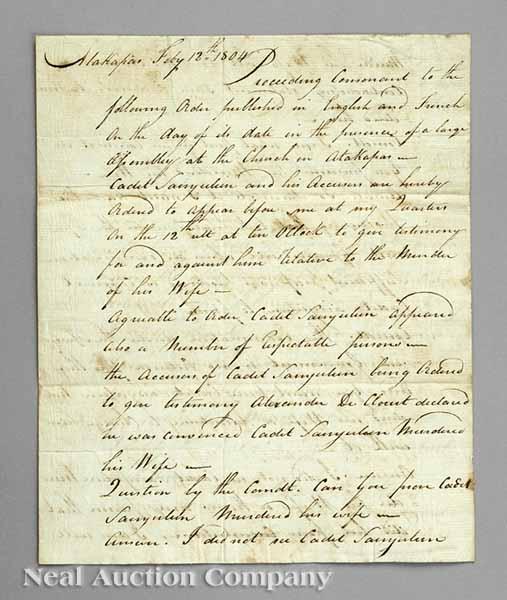 Atakapas, Feby 12th 1804
Proceeding Consonant to the
following Order published in English and French
on the day of its date in the presence of a large
Assembley at the Church in Atakapas —
Cadet and his Accusers are hereby
Ordered to Appear before me at my Quarters
on the 12th ult at ten OClock to give testimony
for and against him relative to the Murder
of his Wife —
Agreable to Order Cadet appeared
also a Number of Respectable persons —
the Accusers of Cadet being Ordered
to give testimony Alexander De Clouet declared
he was convinced Cadet Murdered
his Wife —
Question by the Comdt. Can You prove Cadet
Murdered his wife —
Answer. I did not see Cadet
Neal Auction Company